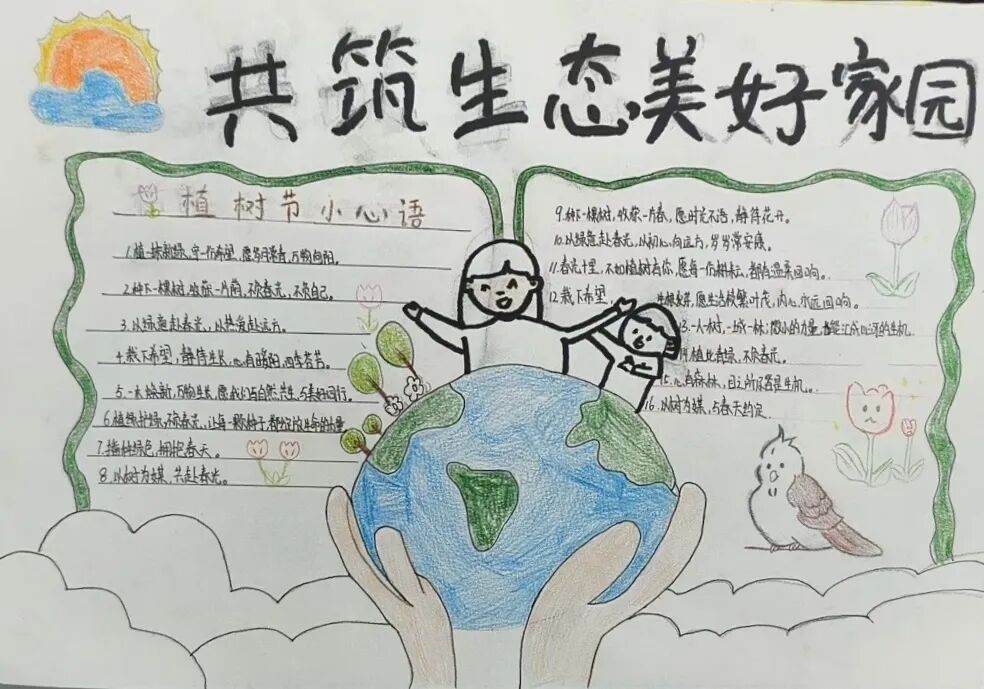 共筑生态美好家园
植树节小心语
1.植一抹新绿,守一份希望,愿岁月常青,万物向阳。
2.种下一棵树,收获一片荫,不负春光,不负自己。
3.以绿意赴春光,以热爱赴远方。
4.栽下希望,静待生长,心有暖阳,四季苍苍。
5.一木焕新,万物共生,愿我们与自然共生,与美好同行。
6.植绿护绿,不负春光,让每一颗种子,都
7.播种绿色,拥抱春天。
8.以树为媒,共赴春光。
9.种下一棵树,收获一片春,愿时光不语,静待花开。
10.以绿意赴春光,以初心向远方,岁岁常安康。
11.春光十里,不如植树有你,愿每一份耕耘,都有温柔回响。
12.栽下希望,
愿生活枝繁叶茂,内心永远回响。
3.一人一树,一城一林;微小的力量,都能汇成 的生机
植此青绿,不负春光。
15.心有森林,目之所及皆是生机。
16.以树为媒,与春天约定